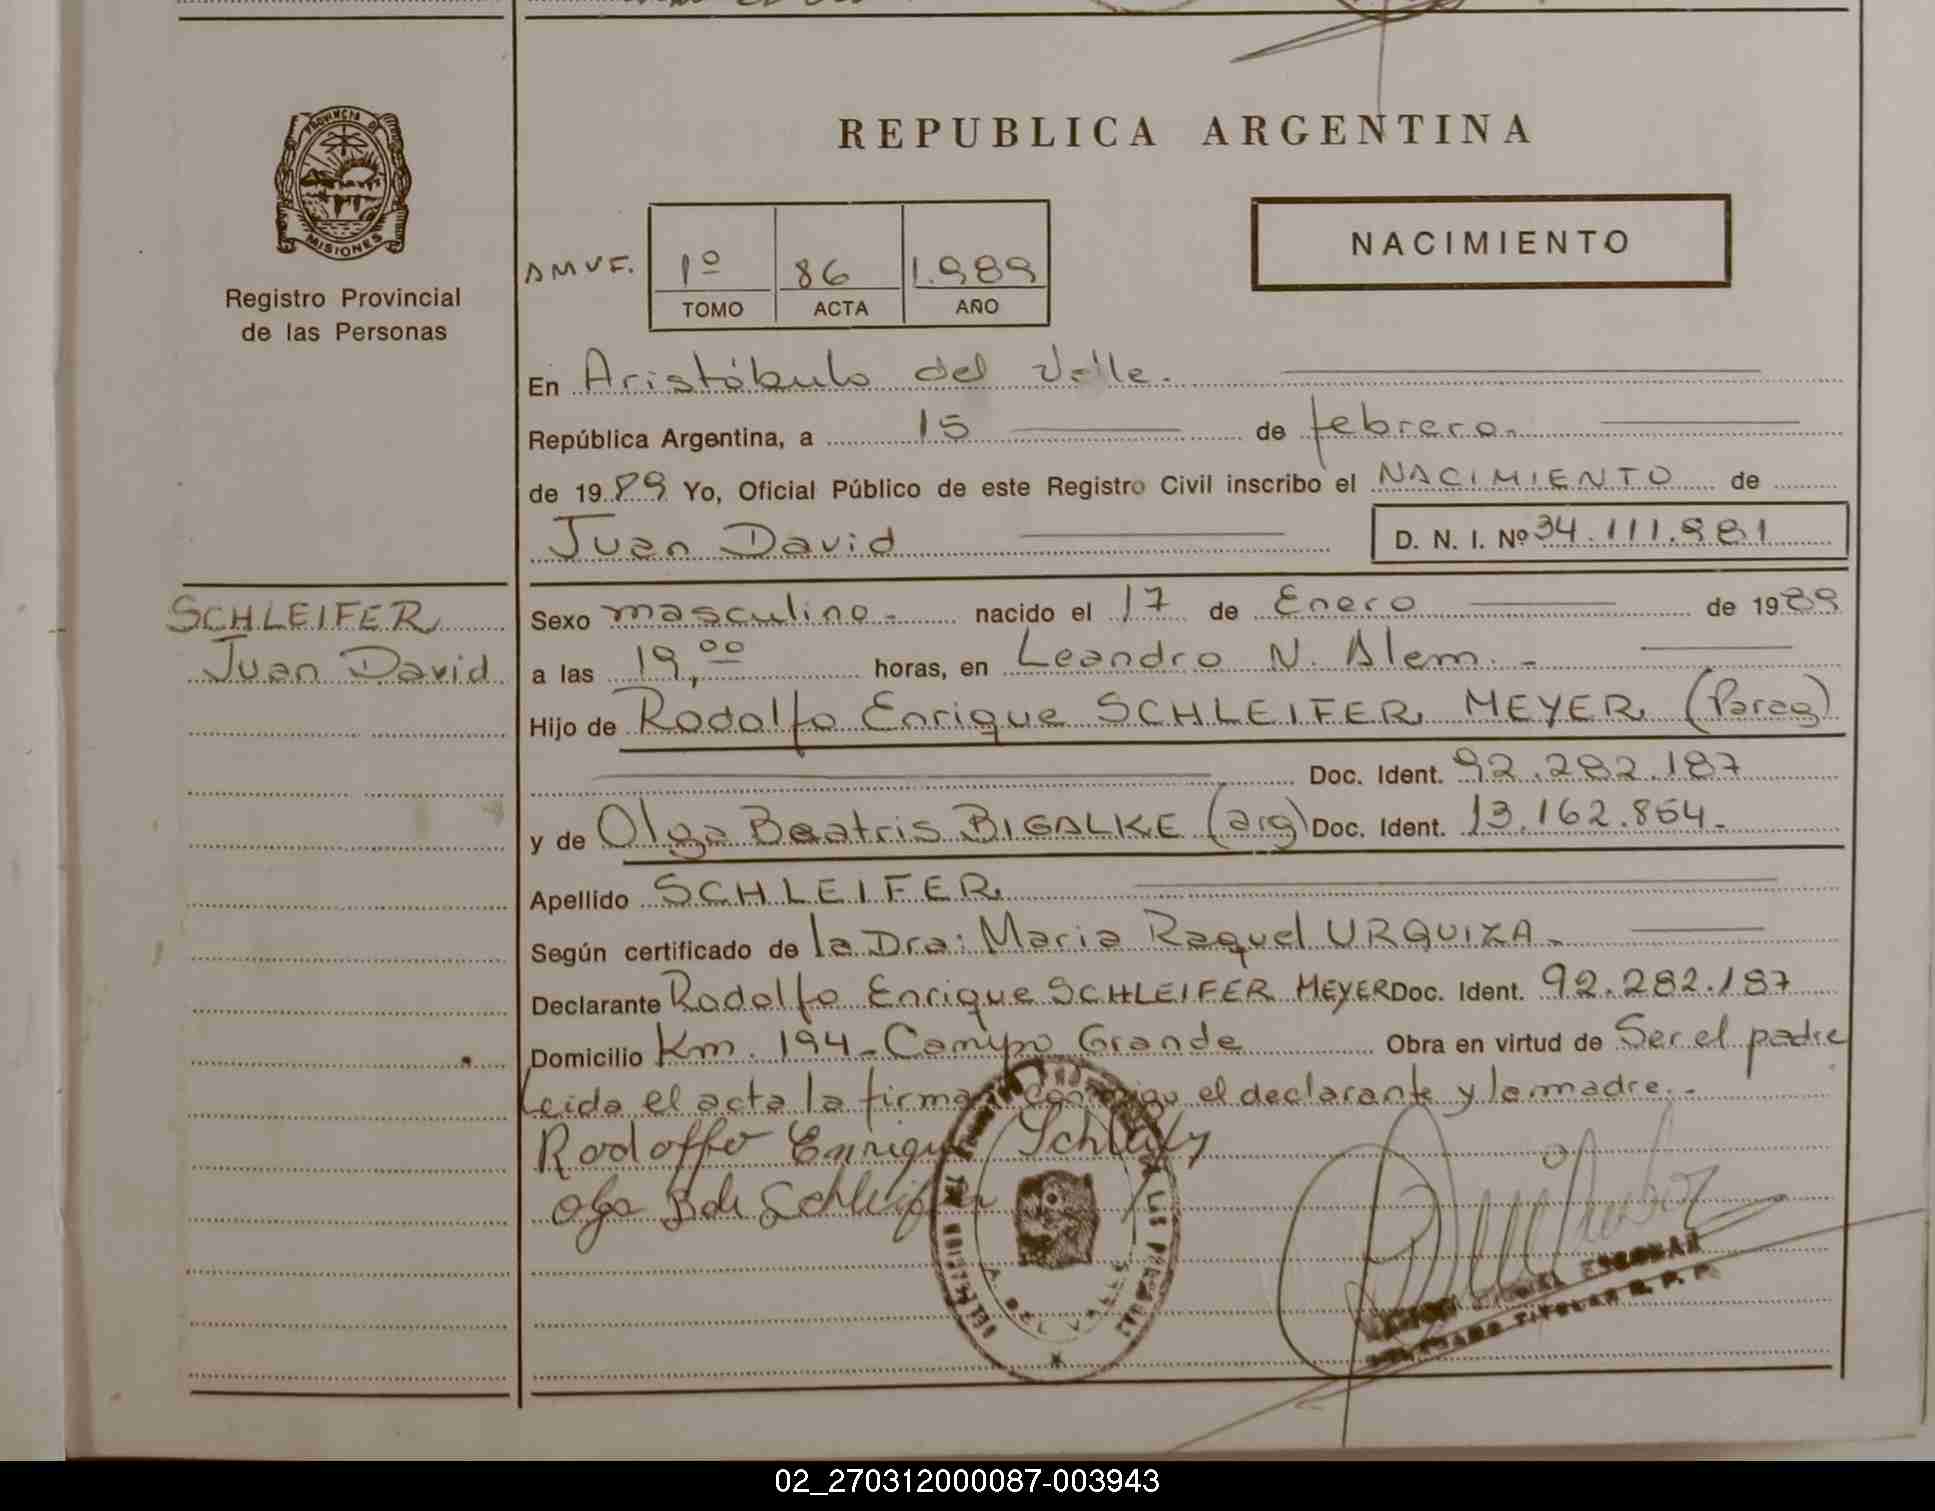 PROVINCIA DE
MISIONES
Registro Provincial
de las Personas
REPUBLICA ARGENTINA
NACIMIENTO
AMVF. 1º 86 1.989
TOMO ACTA AÑO
En Aristóbulo del Valle.
República Argentina, a 15 de febrero.
de 1989 Yo, Oficial Público de este Registro Civil inscribo el NACIMIENTO de
Juan David D. N. I. Nº 34.111.981
SCHLEIFER
Juan David
Sexo masculino.- nacido el 17 de Enero de 1989
a las 19,00 horas, en Leandro N. Alem.-
Hijo de Rodolfo Enrique SCHLEIFER MEYER (Parag)
Doc. Ident. 92.282.187
y de Olga Beatris BIGALKE (arg) Doc. Ident. 13.162.854.-
Apellido SCHLEIFER
Según certificado de la Dra: Maria Raquel URQUIZA.-
Declarante Rodolfo Enrique SCHLEIFER MEYER Doc. Ident. 92.282.187
Domicilio Km. 194 - Campo Grande Obra en virtud de Ser el padre
Leida el acta la firman conmigo el declarante y la madre.-
Rodolfo Enrique Schleifer
Olga B de Schleifer
A. DEL VALLE
LAS PERSONAS
ESCOBAR
TITULAR R. P. P.
02_270312000087-003943